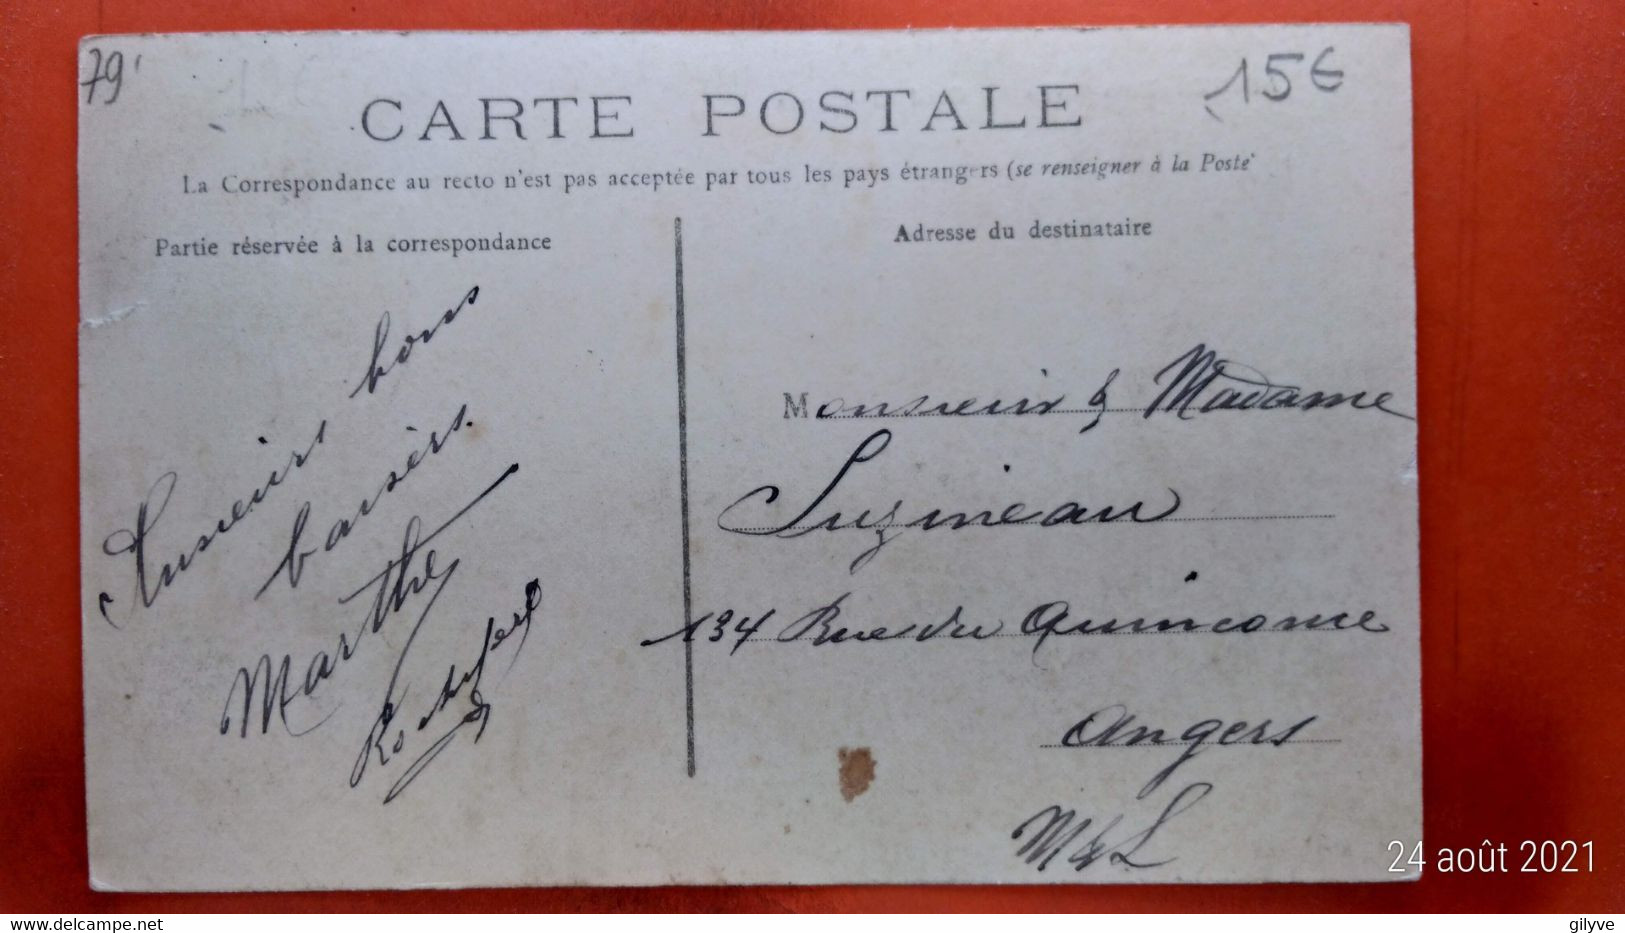 79
15€
CARTE POSTALE
La Correspondance au recto n'est pas acceptée par tous les pays étrangers (se renseigner à la Poste
Partie réservée à la correspondance
Plusieurs bons
baisers.
Marthe
Adresse du destinataire
Monsieur & Madame
Suzineau
134 Rue du Quinconce
Angers
M & L
24 août 2021
gilyve